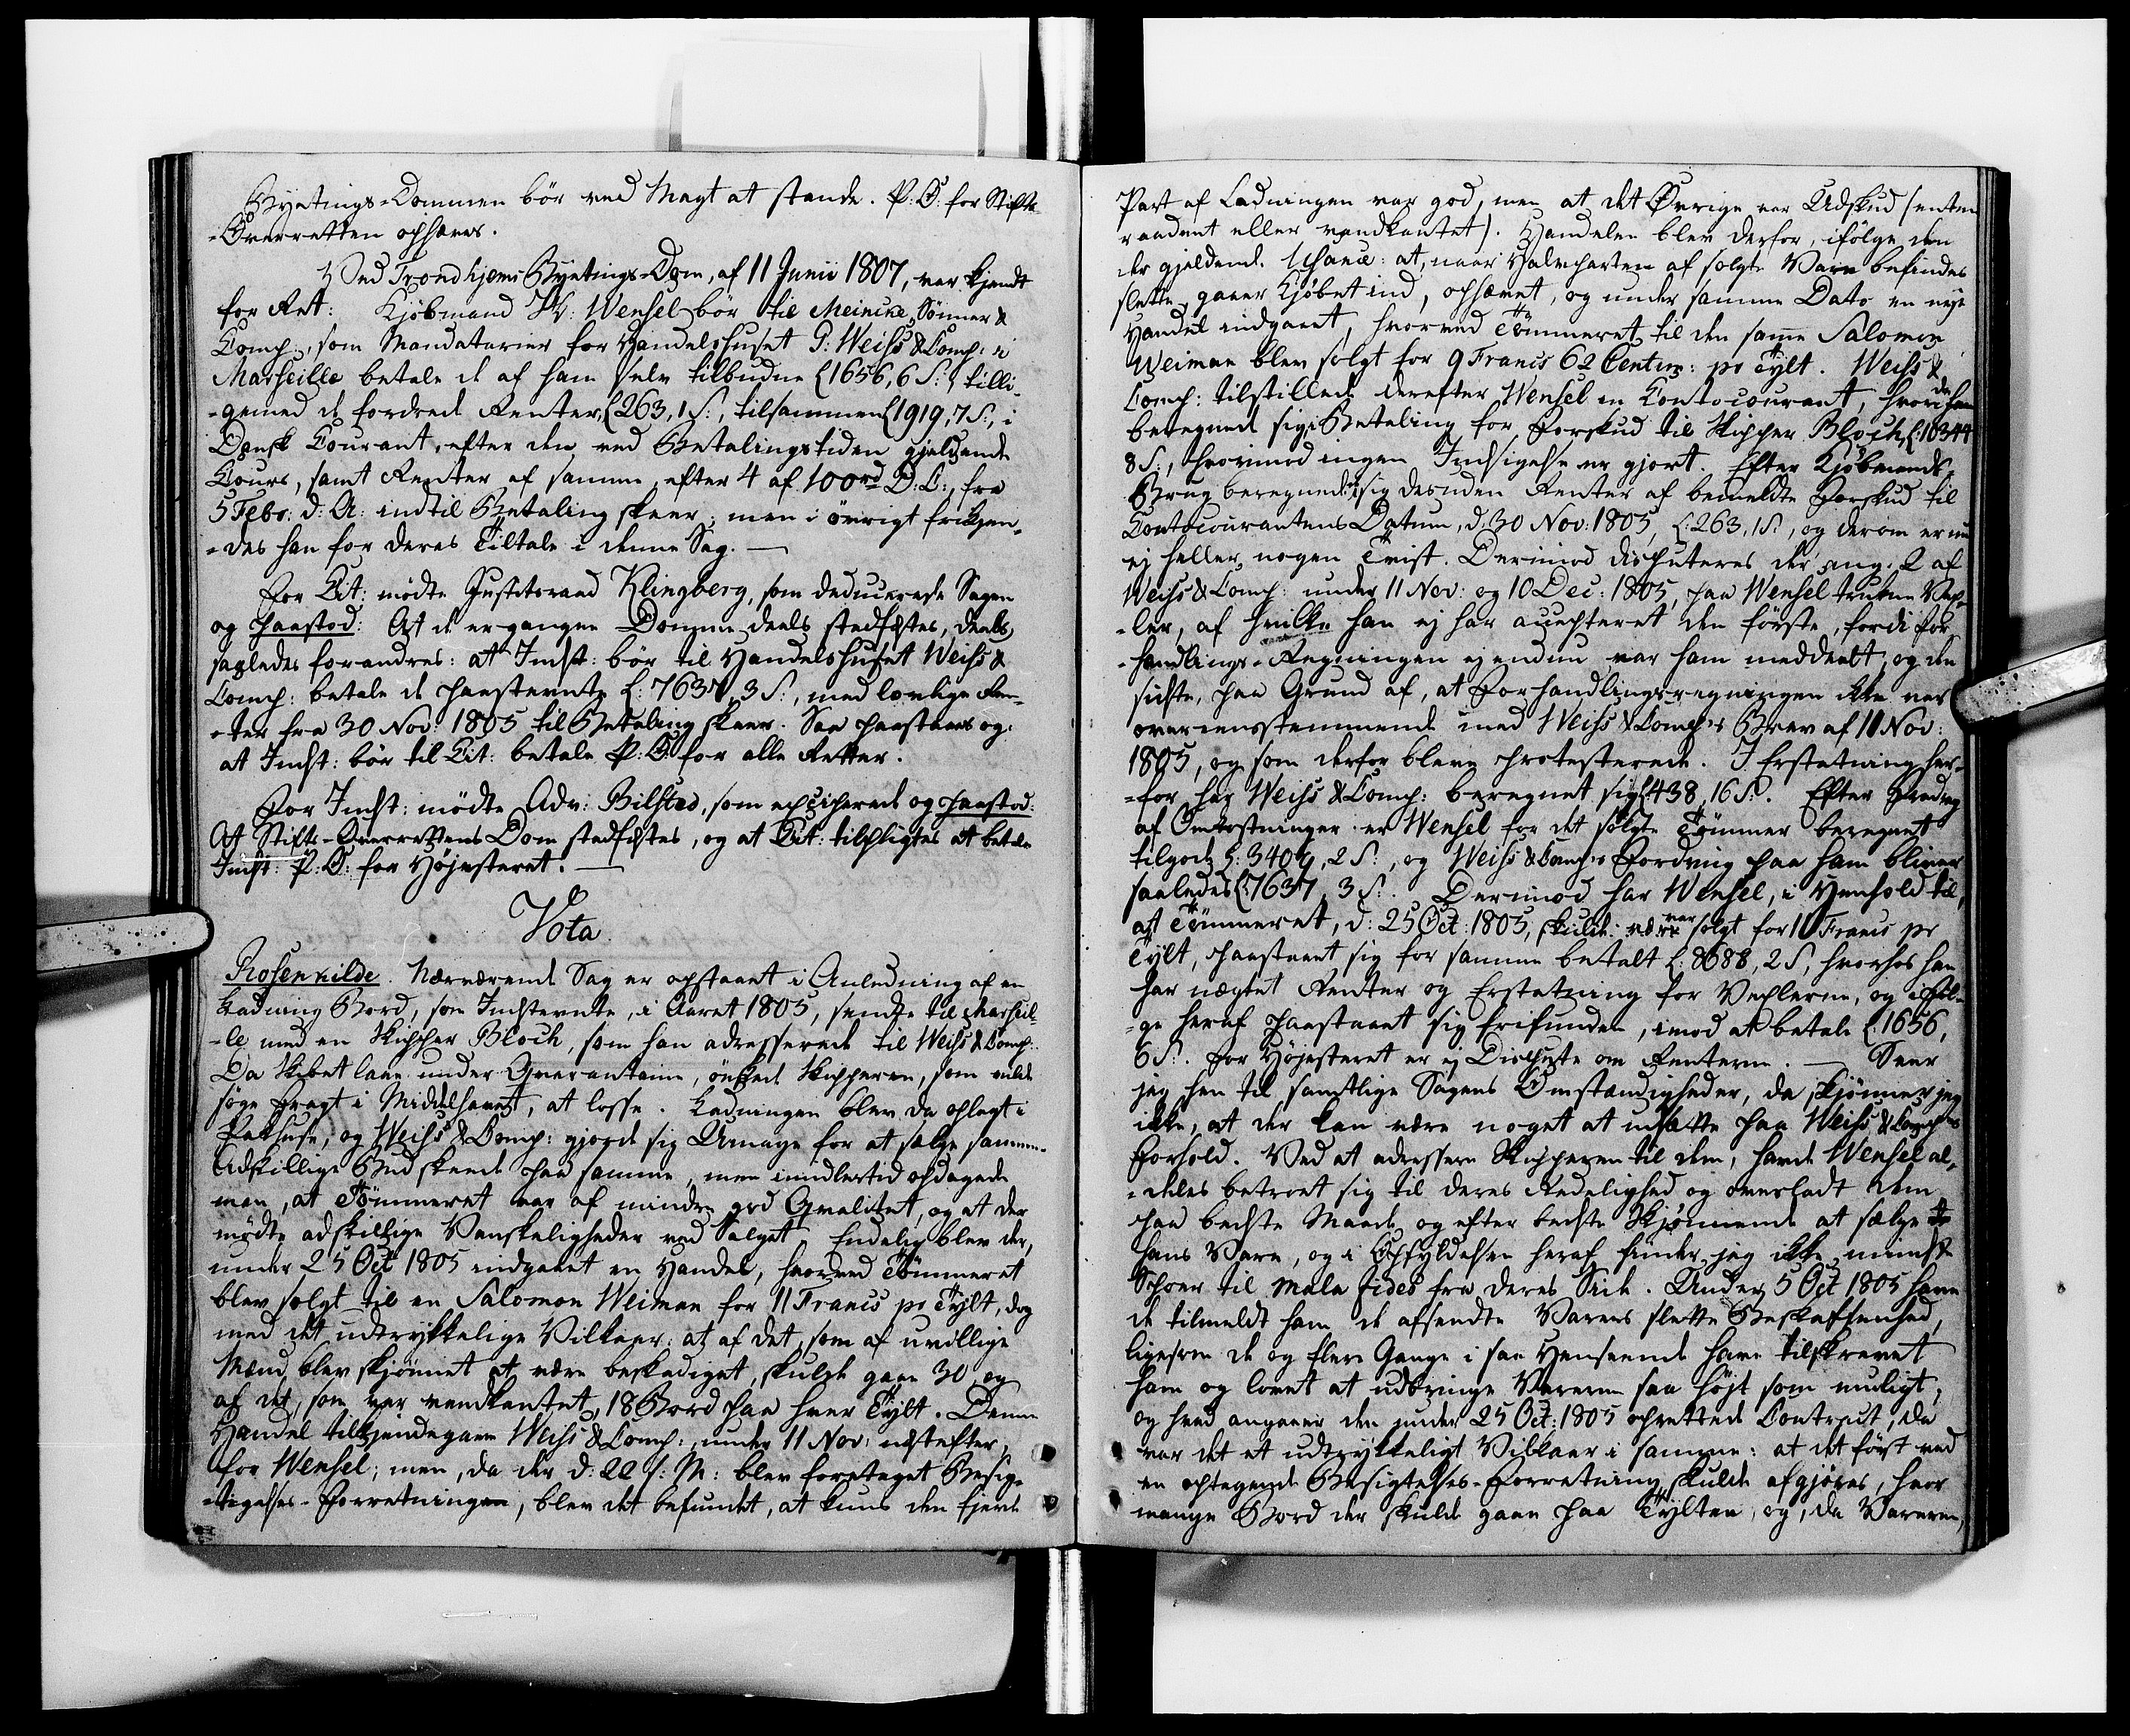 Byetings-Dommen bör ved Magt at stande. P: O: for Stifts-
-Overretten ophæves.
Ved Trondhjems Byetings-Dom, af 11 Junii 1807, var kjendt
for Ret: Kjöbmand Wensel bör til Meincke, Sönner &
Comp:, som Mandatarier for Handelshuset P: Weiss & Comp: i
Marseille betale de af ham selv tilbudne £1656, 6 S: tilli-
-gemed de fordrede Renter, £263, 1 S:, tilsammen £1919, 7 S:, i
Dansk Courant, efter den ved Betalingstiden gjeldende
Cours, samt Renter af samme, efter 4 af 100rd D: C:, fra
5 Febr: d: A: indtil Betaling skeer; men i övrigt frikjen-
-des han for deres Tiltale i denne Sag. —
For Cit: mödte Justitsraad Klingberg, som deducerede Sagen
og paastod: At de ergangne Domme deels stadfæstes, deels
saaledes forandres: at Indst: bör til Handelshuset Weiss &
Comp: betale de paastævnte £: 7637, 3 S:, med lovlige Ren-
-ter fra 30 Nov: 1805 til Betaling skeer. Saa paastaaes og:
at Indst: bör til Cit: betale P: O: for alle Retter.
For Indst: mödte Adv: Bilsted, som exciperede og paastod:
At Stifts-Overrettens Dom stadfæstes, og at Cit: tilpligtes at betale
Indst: P: O: for Höjesteret. —
Vota.
Rosenkilde. Nærværende Sag er opstaaet i Anledning af en
Ladning Bord, som Indstevnte, i Aaret 1805, sendte til Marseil-
-le med en Skipper Bloch, som han adresserede til Weiss & Comp:.
Da Skibet laae under Qvarantaine, önskede Skipperen, som vilde
söge Fragt i Middelhavet, at losse. Ladningen blev da oplagt i
Pakhuse, og Weiss & Comp: gjorde sig Umage for at sælge samme.
Adskillige Bud skeede paa samme, men imidlertid opdagede
man, at Tömmeret var af mindre god Qvalitet, og at der
mödte adskillige Vanskeligheder ved Salget. Endelig blev der,
under 25 Oct 1805 indgaaet en Handel, hvorved Tömmeret
blev solgt til en Salomon Weiman for 11 Francs pr Tylt, dog
med det udtrykkelige Vilkaar: at af det, som af uvillige
Mænd blev skjönnet at være beskadiget, skulde gaae 30, og
af det, som var vandkantet, 18 Bord paa hver Tylt. Denne
Handel tilkjendegave Weiss & Comp:, under 11 Nov: næstefter,
for Wensel; men, da der d: 22 s: M: blev foretaget Besig-
-tigelses-Forretningen, blev det befundet, at kuns den fjerde
Part af Ladningen var god, men at det Övrige var Udskud (enten
raadent eller vandkantet). Handelen blev derfor, ifölge den
der gjeldende Usance: at, naar Halvparten af solgte Vare befindes
slette, gaaer Kjöbet ind, ophævet, og under samme Dato en nye
Handel indgaaet, hvorved Tömmeret til den samme Salomon
Weiman blev solgt for 9 Francs 62 Centim: pr Tylt. Weiss &
Comp: tilstillede derefter Wensel en Contocourant, hvori de have
beregnet sig i Betaling for Forskud til Skipper Bloch, £: 10344
8 S:, hvorimod ingen Indsigelse er gjort. Efter Kjöbmands-
Brug beregnede de sig desuden Renter af bemeldte Forskud til
Contocourantens Datum, d: 30 Nov: 1805, £: 263, 1 S:, og derom er nu
ej heller nogen Tvist. Derimod disputeres der ang: 2 af
Weiss & Comp: under 11 Nov: og 10 Dec: 1805, paa Wensel trukne Vex-
-ler, af hvilke han ej har accepteret den förste, fordi For-
-handlings-Regningen ej endnu var ham meddeelt, og den
sidste, paa Grund af, at Forhandlingsregningen ikke var
overeensstemmende med Weiss & Comp's Brev af 11 Nov:
1805, og som derfor bleve protesterede. I Erstatning her-
-for har Weiss & Comp: beregnet sig £438, 16 S:. Efter Fradrag
af Omkostninger er Wensel for det solgte Tömmer beregnet
tilgode £: 3407, 2 S:, og Weiss & Comp's Fordring paa ham bliver
saaledes £: 7637, 3 S:. Derimod har Wensel, i Henhold til,
at Tömmeret, d: 25 Oct: 1805, var solgt for 11 Francs pr
Tylt, paastaaet sig for samme betalt £: 8688, 2 S, hvorhos han
har nægtet Renter og Erstatning for Vexlerne, og ifölge
-ge heraf paastaaet sig frifunden, imod at betale £: 1656,
6 S:. For Höjesteret er ej Dispute om Renterne. — Seer
jeg hen til samtlige Sagens Omstændigheder, da skjönner jeg
ikke, at der kan være noget at udsætte paa Weiss & Comp's
Forhold. Ved at adressere Skipperen til dem, havde Wensel al-
-deles betroet sig til deres Redelighed og overladt dem
paa bedste Maade og efter bedste Skjönnende at sælge
hans Vare, og i Opfyldelsen heraf finder jeg ikke mindste
Spoer til mala fides fra deres Side. Under 5 Oct 1805 have
de tilmeldt ham de afsendte Varers slette Beskaffenhed,
ligesom de og flere Gange i saa Henseende have tilskrevet
ham og lovet at udbringe Varerne saa höjt som muligt,
og hvad angaaer den under 25 Oct: 1805 oprettede Contract, da
var det et udtrykkeligt Vilkaar i samme: at det först ved
en optagende Besigtelses-Forretning skulde afgjöres, hvor
mange Bord der skulde gaae paa Tylten, og, da Varerne,